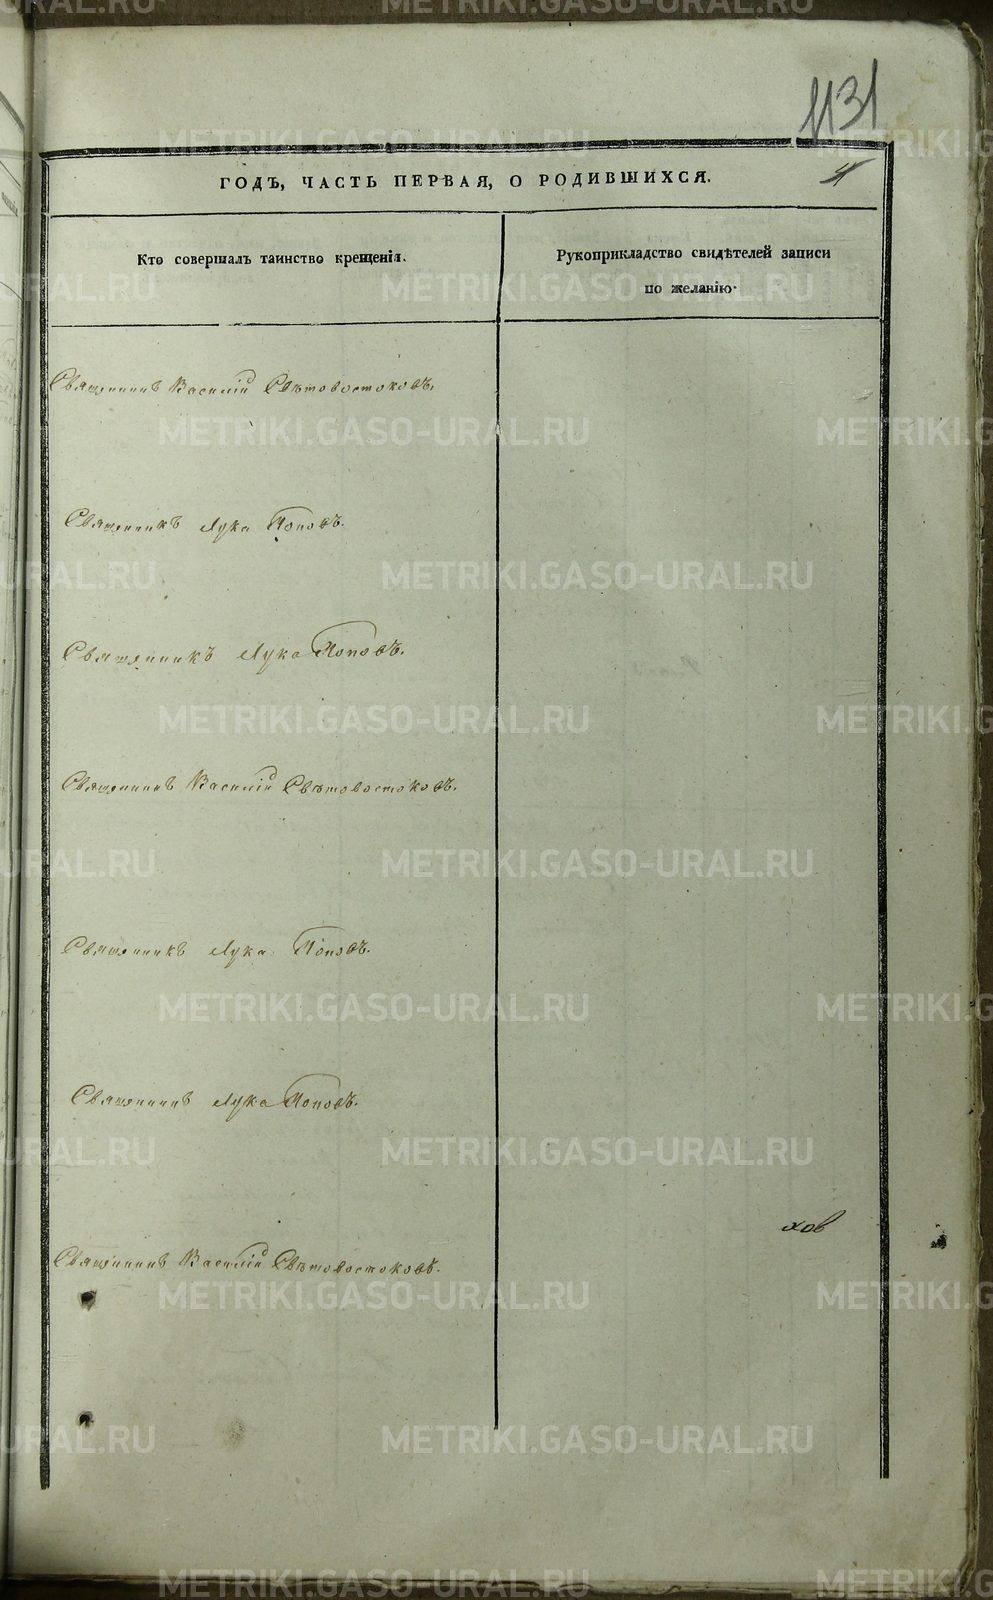 1131
4
ГОДЪ, ЧАСТЬ ПЕРВАЯ, О РОДИВШИХСЯ.
Кто совершалъ таинство крещенія.
Рукоприкладство свидѣтелей записи
по желанію.
Священникъ Василій Свѣтовостоковъ.
Священникъ Лука Поповъ.
Священникъ Лука Поповъ.
Священникъ Василій Свѣтовостоковъ.
Священникъ Лука Поповъ.
Священникъ Лука Поповъ.
хов
Священникъ Василій Свѣтовостоковъ.
METRIKI.GASO-URAL.RU